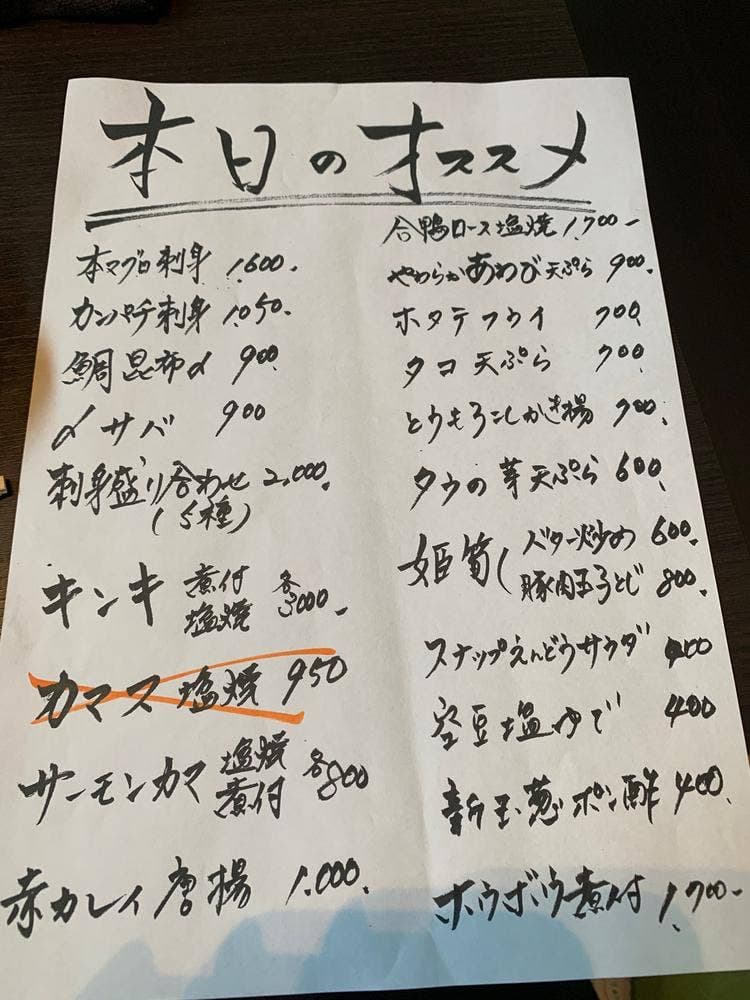 本日のオススメ
本マグロ刺身 1,600.
カンパチ刺身 1,050.
鯛昆布〆 900.
〆サバ 900
刺身盛り合わせ 2,000.
(5種)
キンキ 煮付 塩焼 各3000-
カマス塩焼 950
サーモンカマ 塩焼 煮付 各800
赤カレイ唐揚 1,000.
合鴨ロース塩焼 1,700-
やわらかあわび天ぷら 900.
ホタテフライ 700.
タコ天ぷら 700.
とうもろこしかき揚 700.
タラの芽天ぷら 600.
姫筍( バター炒め 600.
豚肉玉子とじ 800.
スナップえんどうサラダ 400
空豆塩ゆで 400
新玉葱ポン酢 400.
ホウボウ煮付 1,700-